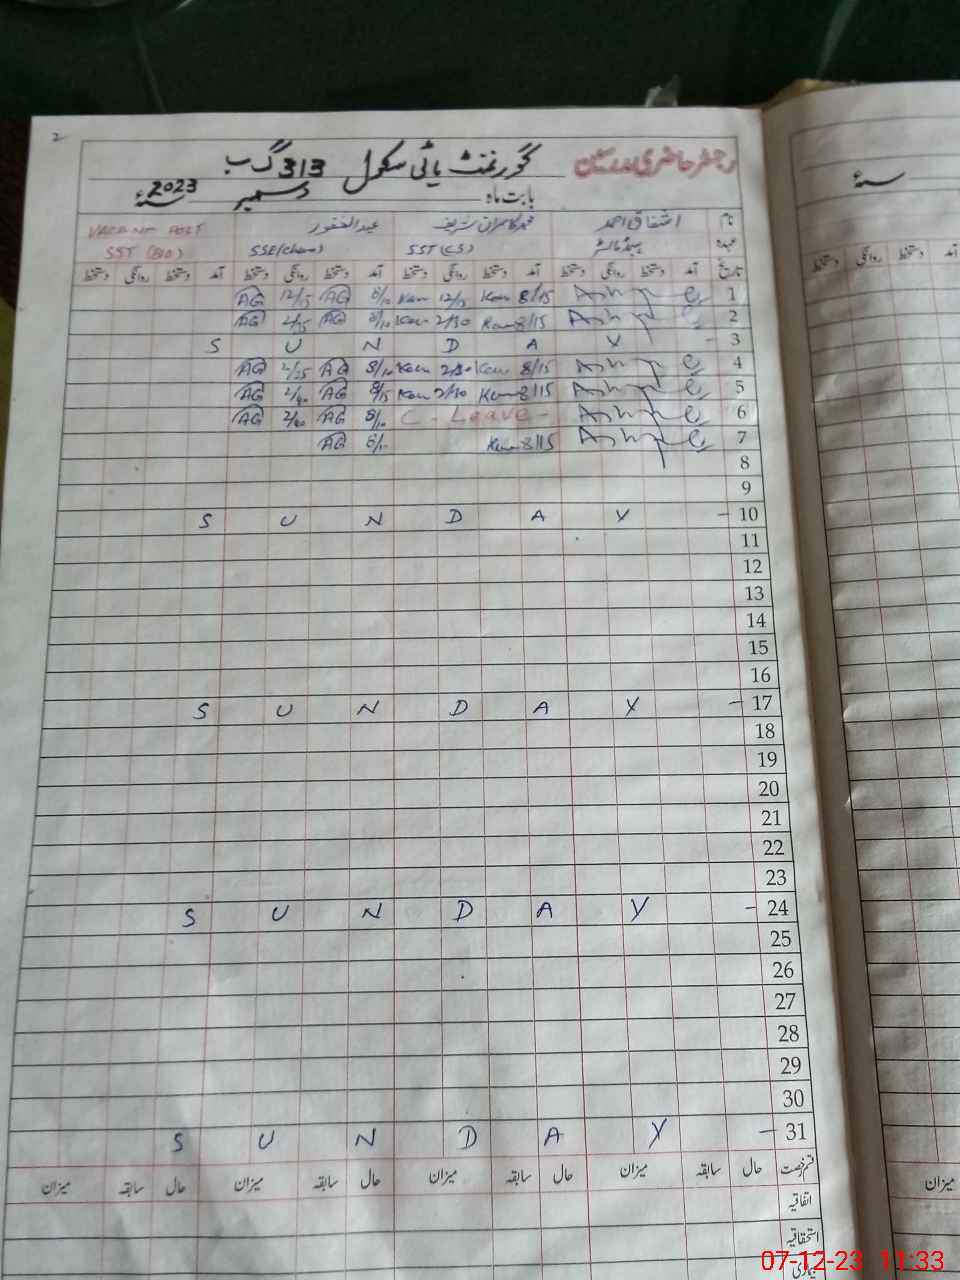 2
رجسٹر حاضری مدرسین گورنمنٹ ہائی سکول 313 گ ب
بابت ماہ دسمبر 2023 سنۂ
نام اشفاق احمد محمد کامران شریف عبدالغفور VACANT POST
عہدہ ہیڈ ماسٹر SST (CS) SSE(Chem) SST (BIO)
تاریخ آمد دستخط روانگی دستخط آمد دستخط روانگی دستخط آمد دستخط روانگی دستخط آمد دستخط روانگی دستخط
1 8/15 Kam 12/15 Kam 8/10 AG 12/15 AG
2 8/15 Kam 2/30 Kam 8/10 AG 2/35 AG
3 - S U N D A Y
4 8/15 Kam 2/30 Kam 8/10 AG 2/35 AG
5 8/15 Kam 2/30 Kam 8/15 AG 2/40 AG
6 C - Leave - 8/10 AG 2/40 AG
7 8/15 Kam 8/10 AG
8
9
10 - S U N D A Y
11
12
13
14
15
16
17 - S U N D A Y
18
19
20
21
22
23
24 - S U N D A Y
25
26
27
28
29
30
31 - S U N D A Y
قسم رخصت حال سابقہ میزان حال سابقہ میزان حال سابقہ میزان حال سابقہ میزان
اتفاقیہ
استحقاقیہ
بیماری
سنۂ
آمد دستخط روانگی دستخط
میزان
07-12-23 11:33